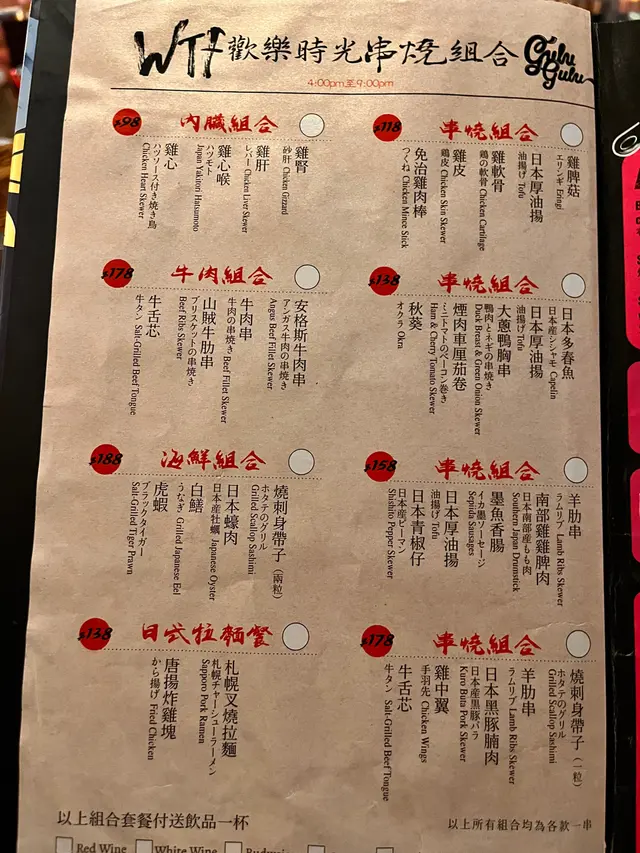 WTF 歡樂時光串燒組合 Gulu Gulu
4:00pm至9:00pm
$118 串燒組合
雞脾菇
エリンギ Eringi
日本厚油揚
油揚げ Tofu
雞軟骨
鶏の軟骨 Chicken Cartilage
雞皮
鶏皮 Chicken Skin Skewer
免治雞肉棒
つくね Chicken Mince Stick
$98 內臟組合
雞腎
砂肝 Chicken Gizzard
雞肝
レバー Chicken Liver Skewer
雞心喉
ハツモト
Japan Yakitori Hatsumoto
雞心
ハツソース付き焼き鳥
Chicken Heart Skewer
$138 串燒組合
日本多春魚
日本産シシャモ Capelin
日本厚油揚
油揚げ Tofu
大蔥鴨胸串
鴨肉とネギの串焼き
Duck Breast & Green Onion Skewer
煙肉車厘茄卷
ミニトマトのベーコン巻き
Ham & Cherry Tomato Skewer
秋葵
オクラ Okra
$178 牛肉組合
安格斯牛肉串
アンガス牛肉の串焼き
Angus Beef Fillet Skewer
牛肉串
牛肉の串焼き Beef Fillet Skewer
山賊牛肋串
ブリスケットの串焼き
Beef Ribs Skewer
牛舌芯
牛タン Salt-Grilled Beef Tongue
$158 串燒組合
羊肋串
ラムリブ Lamb Ribs Skewer
南部雞雞脾肉
日本南部産もも肉
Southern Japan Drumstick
墨魚香腸
イカ墨ソーセージ
Sepiida Sausages
日本厚油揚
油揚げ Tofu
日本青椒仔
日本産ピーマン
Shishito Pepper Skewer
$188 海鮮組合
燒刺身帶子（兩粒）
ホタテのグリル
Grilled Scallop Sashimi
日本蠔肉
日本産牡蠣 Japanese Oyster
白鱔
うなぎ Grilled Japanese Eel
虎蝦
ブラックタイガー
Salt-Grilled Tiger Prawn
$178 串燒組合
燒刺身帶子（一粒）
ホタテのグリル
Grilled Scallop Sashimi
羊肋串
ラムリブ Lamb Ribs Skewer
日本黑豚腩肉
日本産黒豚バラ
Kuro Buta Pork Skewer
雞中翼
手羽先 Chicken Wings
牛舌芯
牛タン Salt-Grilled Beef Tongue
$138 日式拉麵餐
札幌叉燒拉麵
札幌チャーシューラーメン
Sapporo Pork Ramen
唐揚炸雞塊
から揚げ Fried Chicken
以上組合套餐付送飲品一杯
以上所有組合均為各款一串
Red Wine White Wine